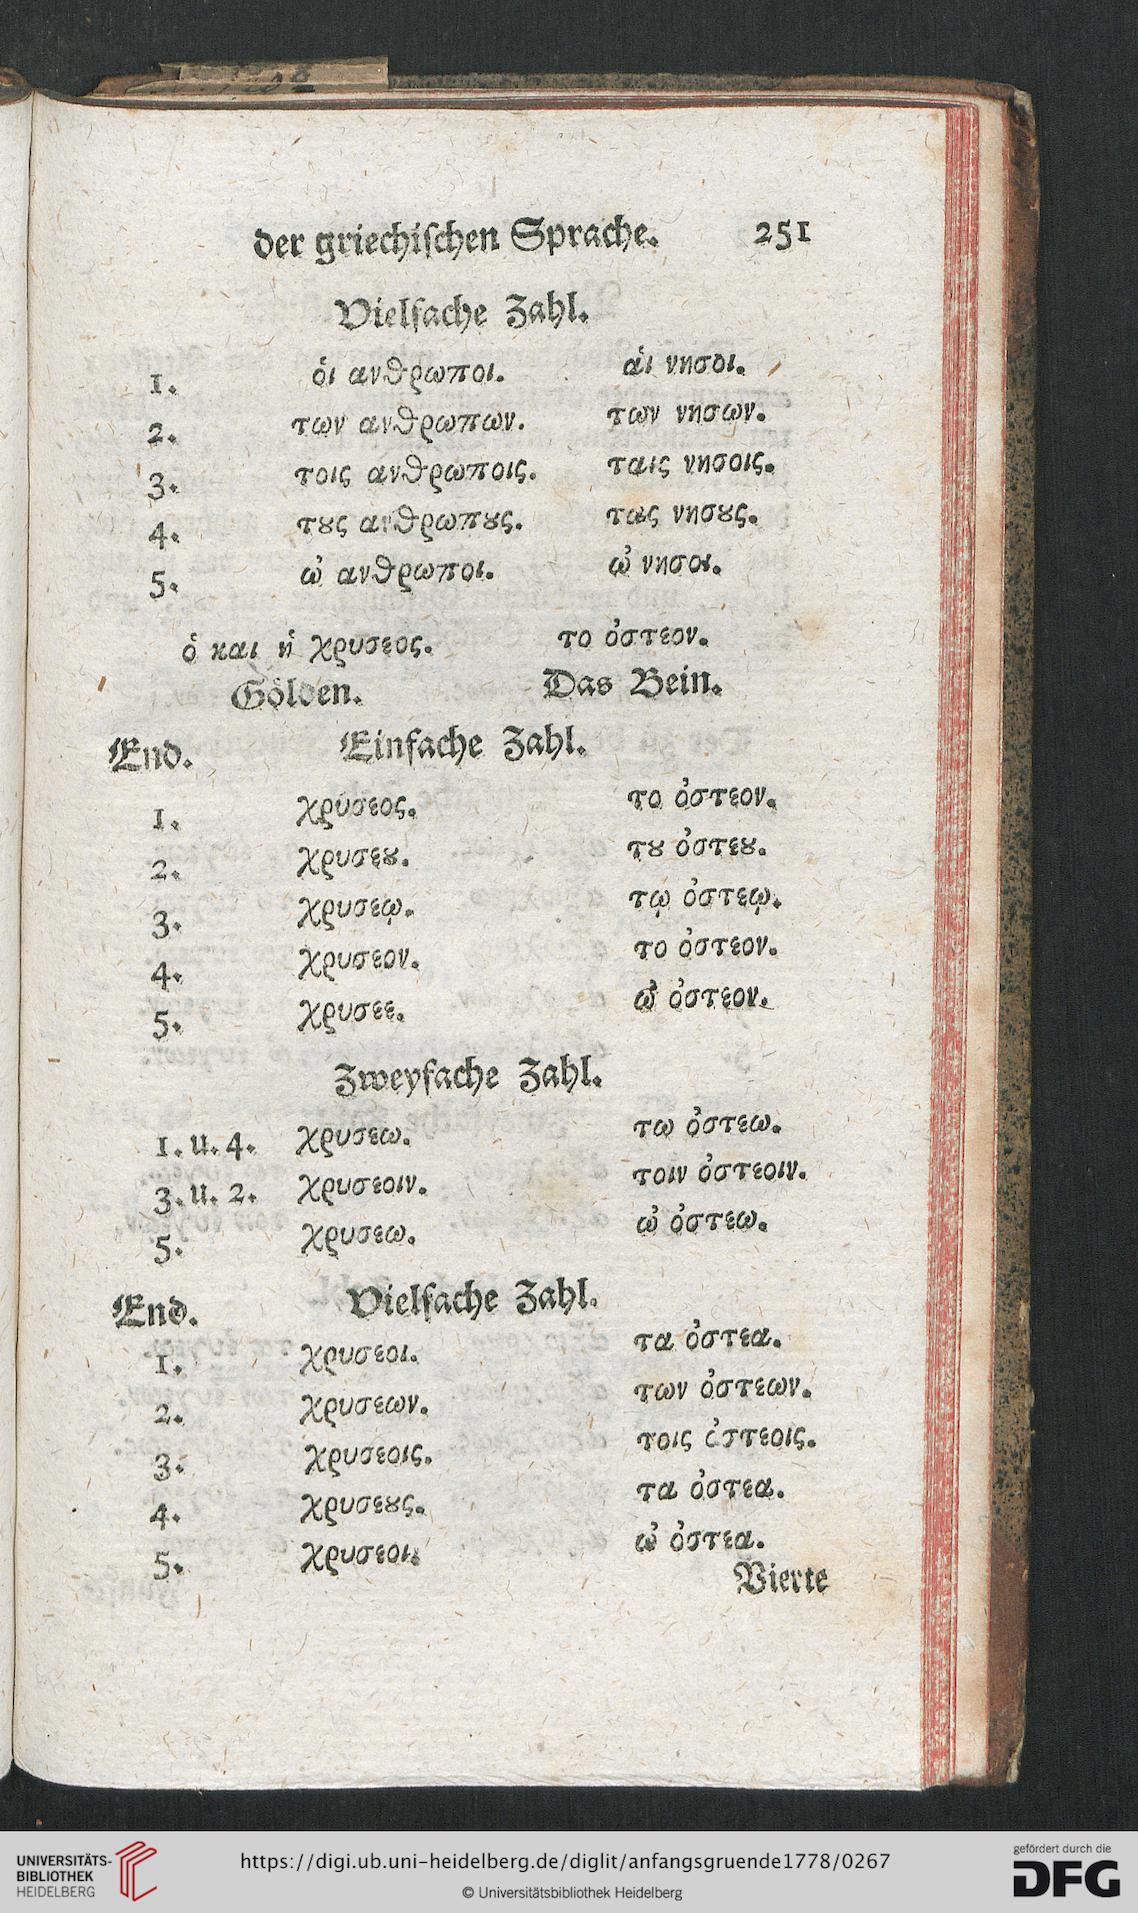 der griechischen Sprache. 251
Vielfache Zahl.
1. ὁι ανθρωποι. ἁι νησοι.
2. των ανθρωπων. των νησων.
3. τοις ανθρωποις. ταις νησοις.
4. τȣς ανθρωπȣς. τας νησȣς.
5. ὠ ανθρωποι. ὠ νησοι.
ὁ και ἡ χρυσεος. το ὀστεον.
Gölden. Das Bein.
End. Einfache Zahl.
1. χρυσεος. το ὀστεον.
2. χρυσεȣ. τȣ ὀστεȣ.
3. χρυσεῳ. τῳ ὀστεῳ.
4. χρυσεον. το ὀστεον.
5. χρυσεε. ὠ ὀστεον.
Zweyfache Zahl.
1. u. 4. χρυσεω. τω ὀστεω.
3. u. 2. χρυσεοιν. τοιν ὀστεοιν.
5. χρυσεω. ὠ ὀστεω.
End. Vielfache Zahl.
1. χρυσεοι. τα ὀστεα.
2. χρυσεων. των ὀστεων.
3. χρυσεοις. τοις ὀστεοις.
4. χρυσεȣς. τα ὀστεα.
5. χρυσεοι. ὠ ὀστεα.
Vierte
UNIVERSITÄTS-
BIBLIOTHEK
HEIDELBERG
https://digi.ub.uni-heidelberg.de/diglit/anfangsgruende1778/0267
© Universitätsbibliothek Heidelberg
gefördert durch die
DFG